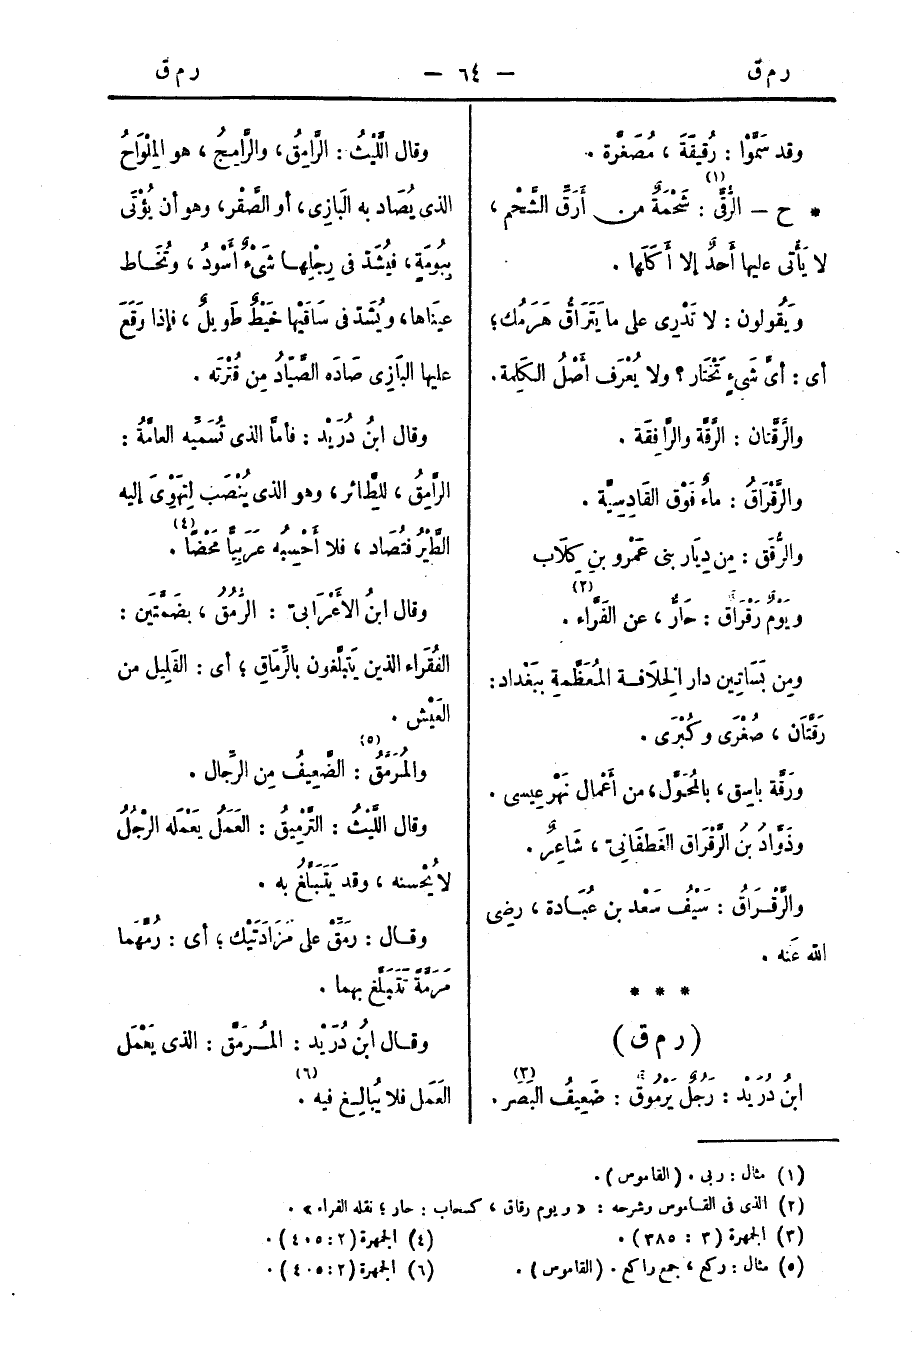 ر م ق — ٦٤ — ر م ق
وقد سَمَّوْا : رُقَيْقَةَ ، مُصَغَّرة .
* ح – الرُّقَّى(١) : شَحْمَةٌ من أَرَقِّ الشَّحْم ،
لا يَأْتى عليها أَحدٌ إلا أَكَلَها .
ويَقُولون : لا تَدْرِى على ما يَتَرَاقُّ هَرَمُك ؛
أى : أىَّ شَىءٍ تَخْتَار ؟ ولا يُعْرَف أَصْلُ الكَلِمة .
والرَّقَّتان : الرَّقَّة والرَّافِقَة .
والرَّقْرَاقُ : ماءٌ فَوْق القَادِسِيَّة .
والرُّقَق : مِن دِيَار بنى عَمْرو بنِ كِلَاب
ويَوْمٌ رَقْرَاقٌ : حَارٌّ ، عن الفَرَّاء(٢) .
ومِن بَسَاتِين دار الخِلَافـة المُعَظَّمةِ بِبَغْداد :
رَقَّتَان ، صُغْرَى وكُبْرَى .
ورَقَّة باسِق ، بالمُحَوَّل ، من أَعْمال نَهْر عِيسى .
وذَوَّادُ بنُ الرَّقْرَاق الغَطفَانىّ ، شَاعِرٌ .
والرَّقْـرَاقُ : سَيْفُ سَعْد بن عُبَـادة ، رضى
الله عَنه .
* * *
( ر م ق )
ابنُ دُرَيْد : رَجُلٌ يَرْمُوقٌ : ضَعِيفُ البَصَر(٣) .
وقال اللَّيْثُ : الرَّامِقُ ، والرَّامِجُ ، هو المِلْوَاحُ
الذى يُصَاد به البَازِى ، أو الصَّقْر ، وهو أن يُؤْتَى
بِبُومَةٍ ، فيُشَدّ فى رِجْلِهـا شَىْءٌ أَسْودُ ، وتُخَـاط
عيناها ، ويُشَدّ فى سَاقَيْها خَيْطٌ طَوِيلٌ ، فإذا وَقَعَ
عليها البَازِى صَادَه الصَّيّادُ مِن قُتْرَتِه .
وقال ابنُ دُرَيْد : فأمَّا الذى تُسَمِّيه العامَّةُ :
الرامِقُ ، للطَّائر ، وهو الذى يُنْصَب لتَهْوِىَ إليه
الطَّيْرُ فتُصَاد ، فلا أَحْسِبه عَرَبِيًّا مَحْضًا(٤) .
وقال ابنُ الأَعْرَابىّ : الرُّمُقُ ، بضَمَّتَين :
الفُقَراء الذين يَتَبلَّغون بالرِّمَاق ؛ أى : القَلِيل من
العَيْش .
والمُرَمَّقُ(٥) : الضَّعِيفُ مِن الرِّجال .
وقال اللَّيْثُ : التَّرْمِيقُ : العَمَلُ يَعْمَله الرَّجُلُ
لا يُحْسنه ، وقد يَتَبَلَّغُ به .
وقـال : رَمِّقْ على مَزَادَتَيْك ؛ أى : رُمَّهما
مَرَمَّةً تَتَبَلَّغ بهما .
وقـال ابنُ دُرَيْد : المُـرمَقُّ : الذى يَعْمَل
العَمَل فلا يُبالِـغ فيه(٦) .
(١) مثال : ربى . (القاموس) .
(٢) الذى فى القـاموس وشرحه : « ويوم رقاق ، كسحاب : حار ؛ نقله الفراء » .
(٣) الجمهرة (٣ : ٣٨٥) . (٤) الجمهرة (٢ : ٤٠٥) .
(٥) مثال : ركع ، جمع راكع . (القاموس) . (٦) الجمهرة (٢ : ٤٠٥) .